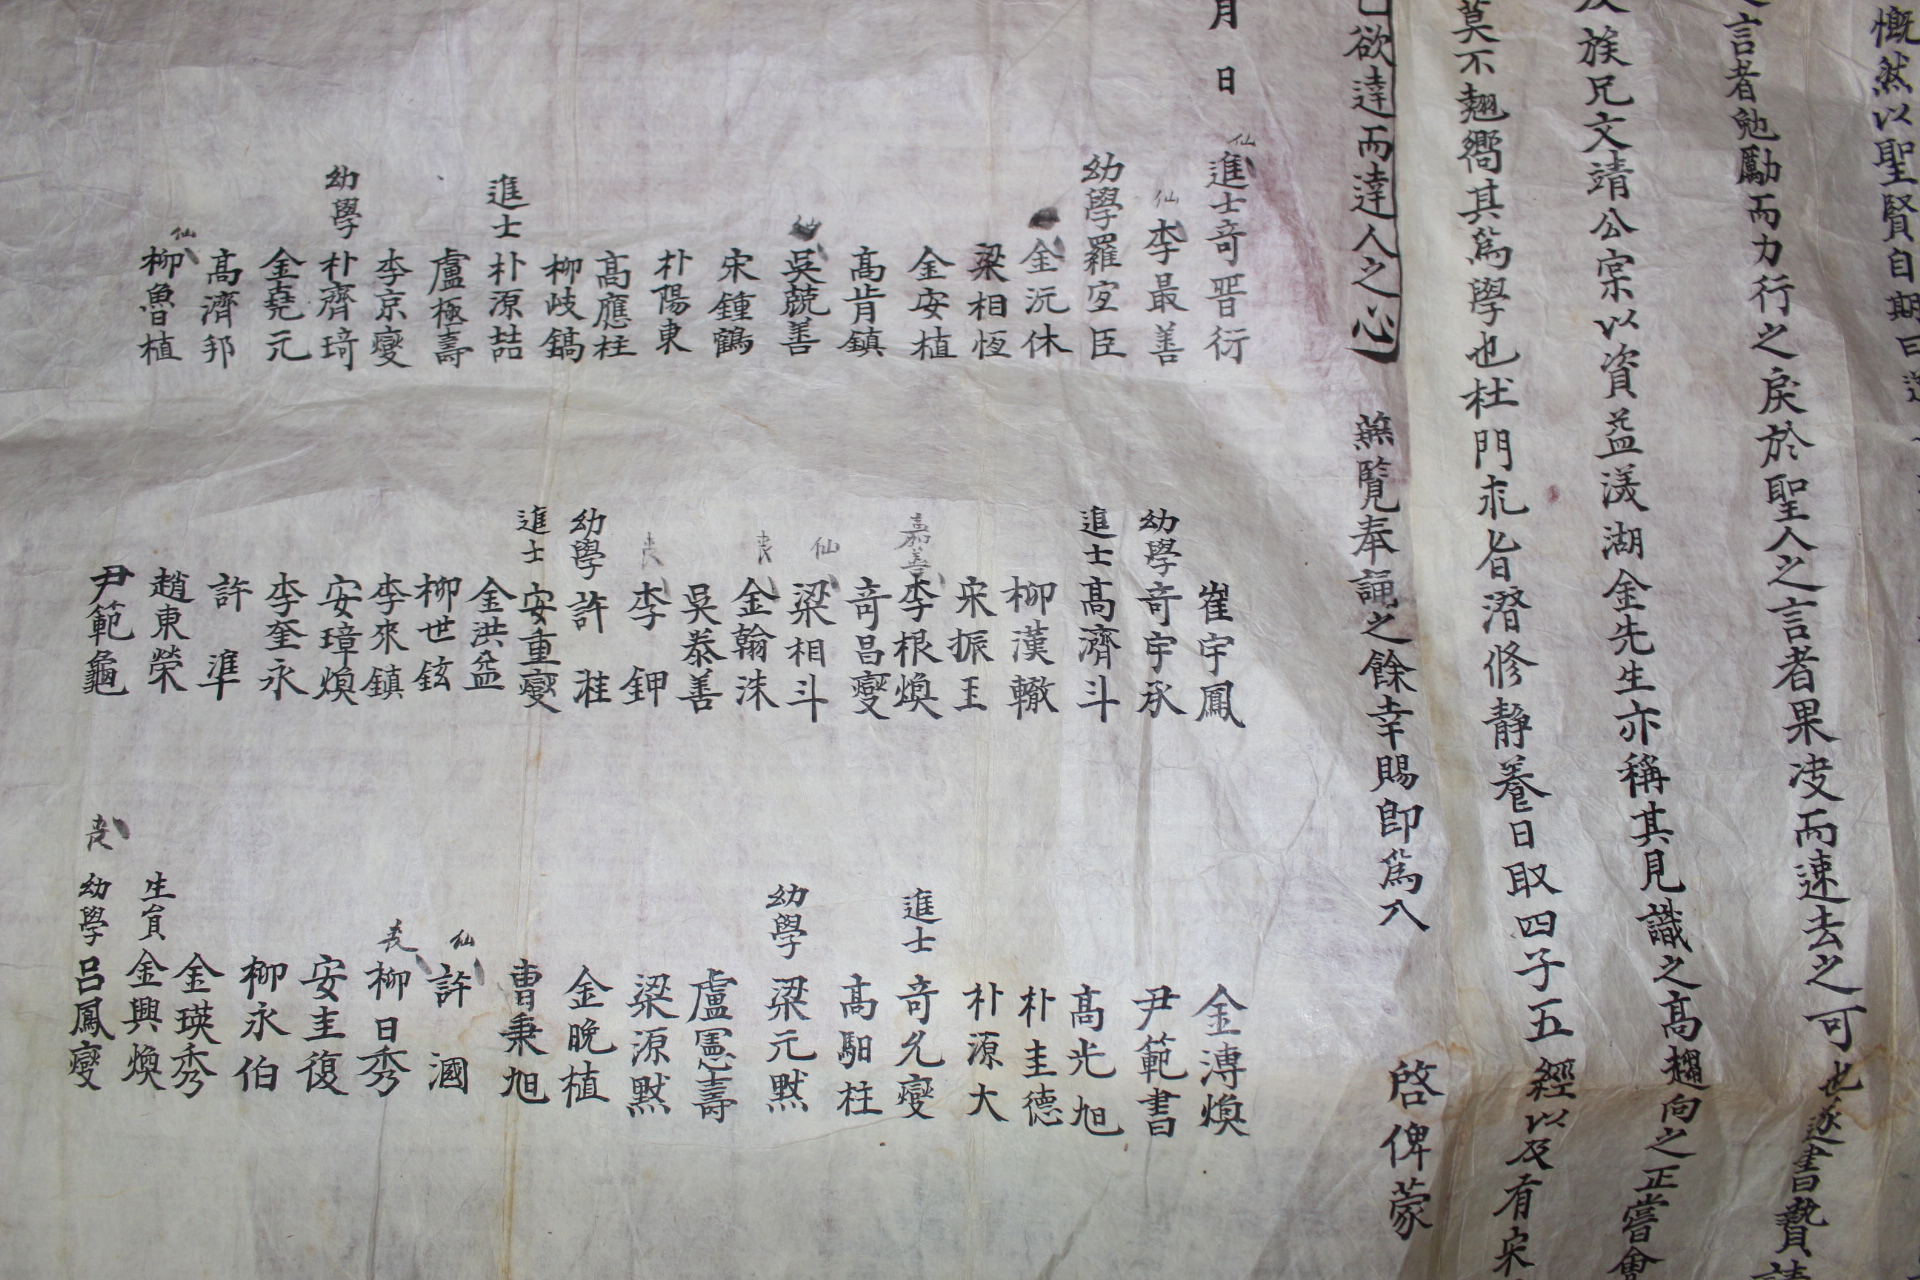 慨然以聖賢自期曰
言者勉勵而力行之戾於聖人之言者果决而速去之可也遂書贄請
族兄文靖公宗以資益渼湖金先生亦稱其見識之高趨向之正嘗會
莫不翹嚮其爲學也杜門求旨潛修靜養日取四子五經以及有宋
欲達而達人之心 蕪覽奉誦之餘幸賜卽爲 啓俾蒙
月 日
仙 進士奇晋衍
仙 李最善
幼學羅宜臣
金沅休
梁相恆
金安植
高肯鎮
仙 吳兢善
宋鍾鶴
朴陽東
高應柱
柳岐鎬
進士朴源喆
盧極壽
李京燮
幼學朴齊琦
金堯元
高濟邦
仙 柳魯植
崔宇鳳
幼學奇宇承
進士高濟斗
柳漢轍
宋振玉
嘉善李根煥
奇昌燮
仙 梁相斗
丧 金翰洙
吳恭善
丧 李 鉀
幼學許 溎
進士安重燮
金洪益
柳世鉉
李來鎮
安璋煥
李奎永
許 準
趙東榮
尹範龜
金溥煥
尹範書
高光旭
朴圭德
朴源大
進士奇允燮
高馹柱
幼學梁元默
盧憲壽
梁源默
金晚植
曹秉旭
仙 許 國
丧 柳日秀
安圭復
柳永伯
金瑛秀
生員金興煥
丧 幼學呂鳳燮